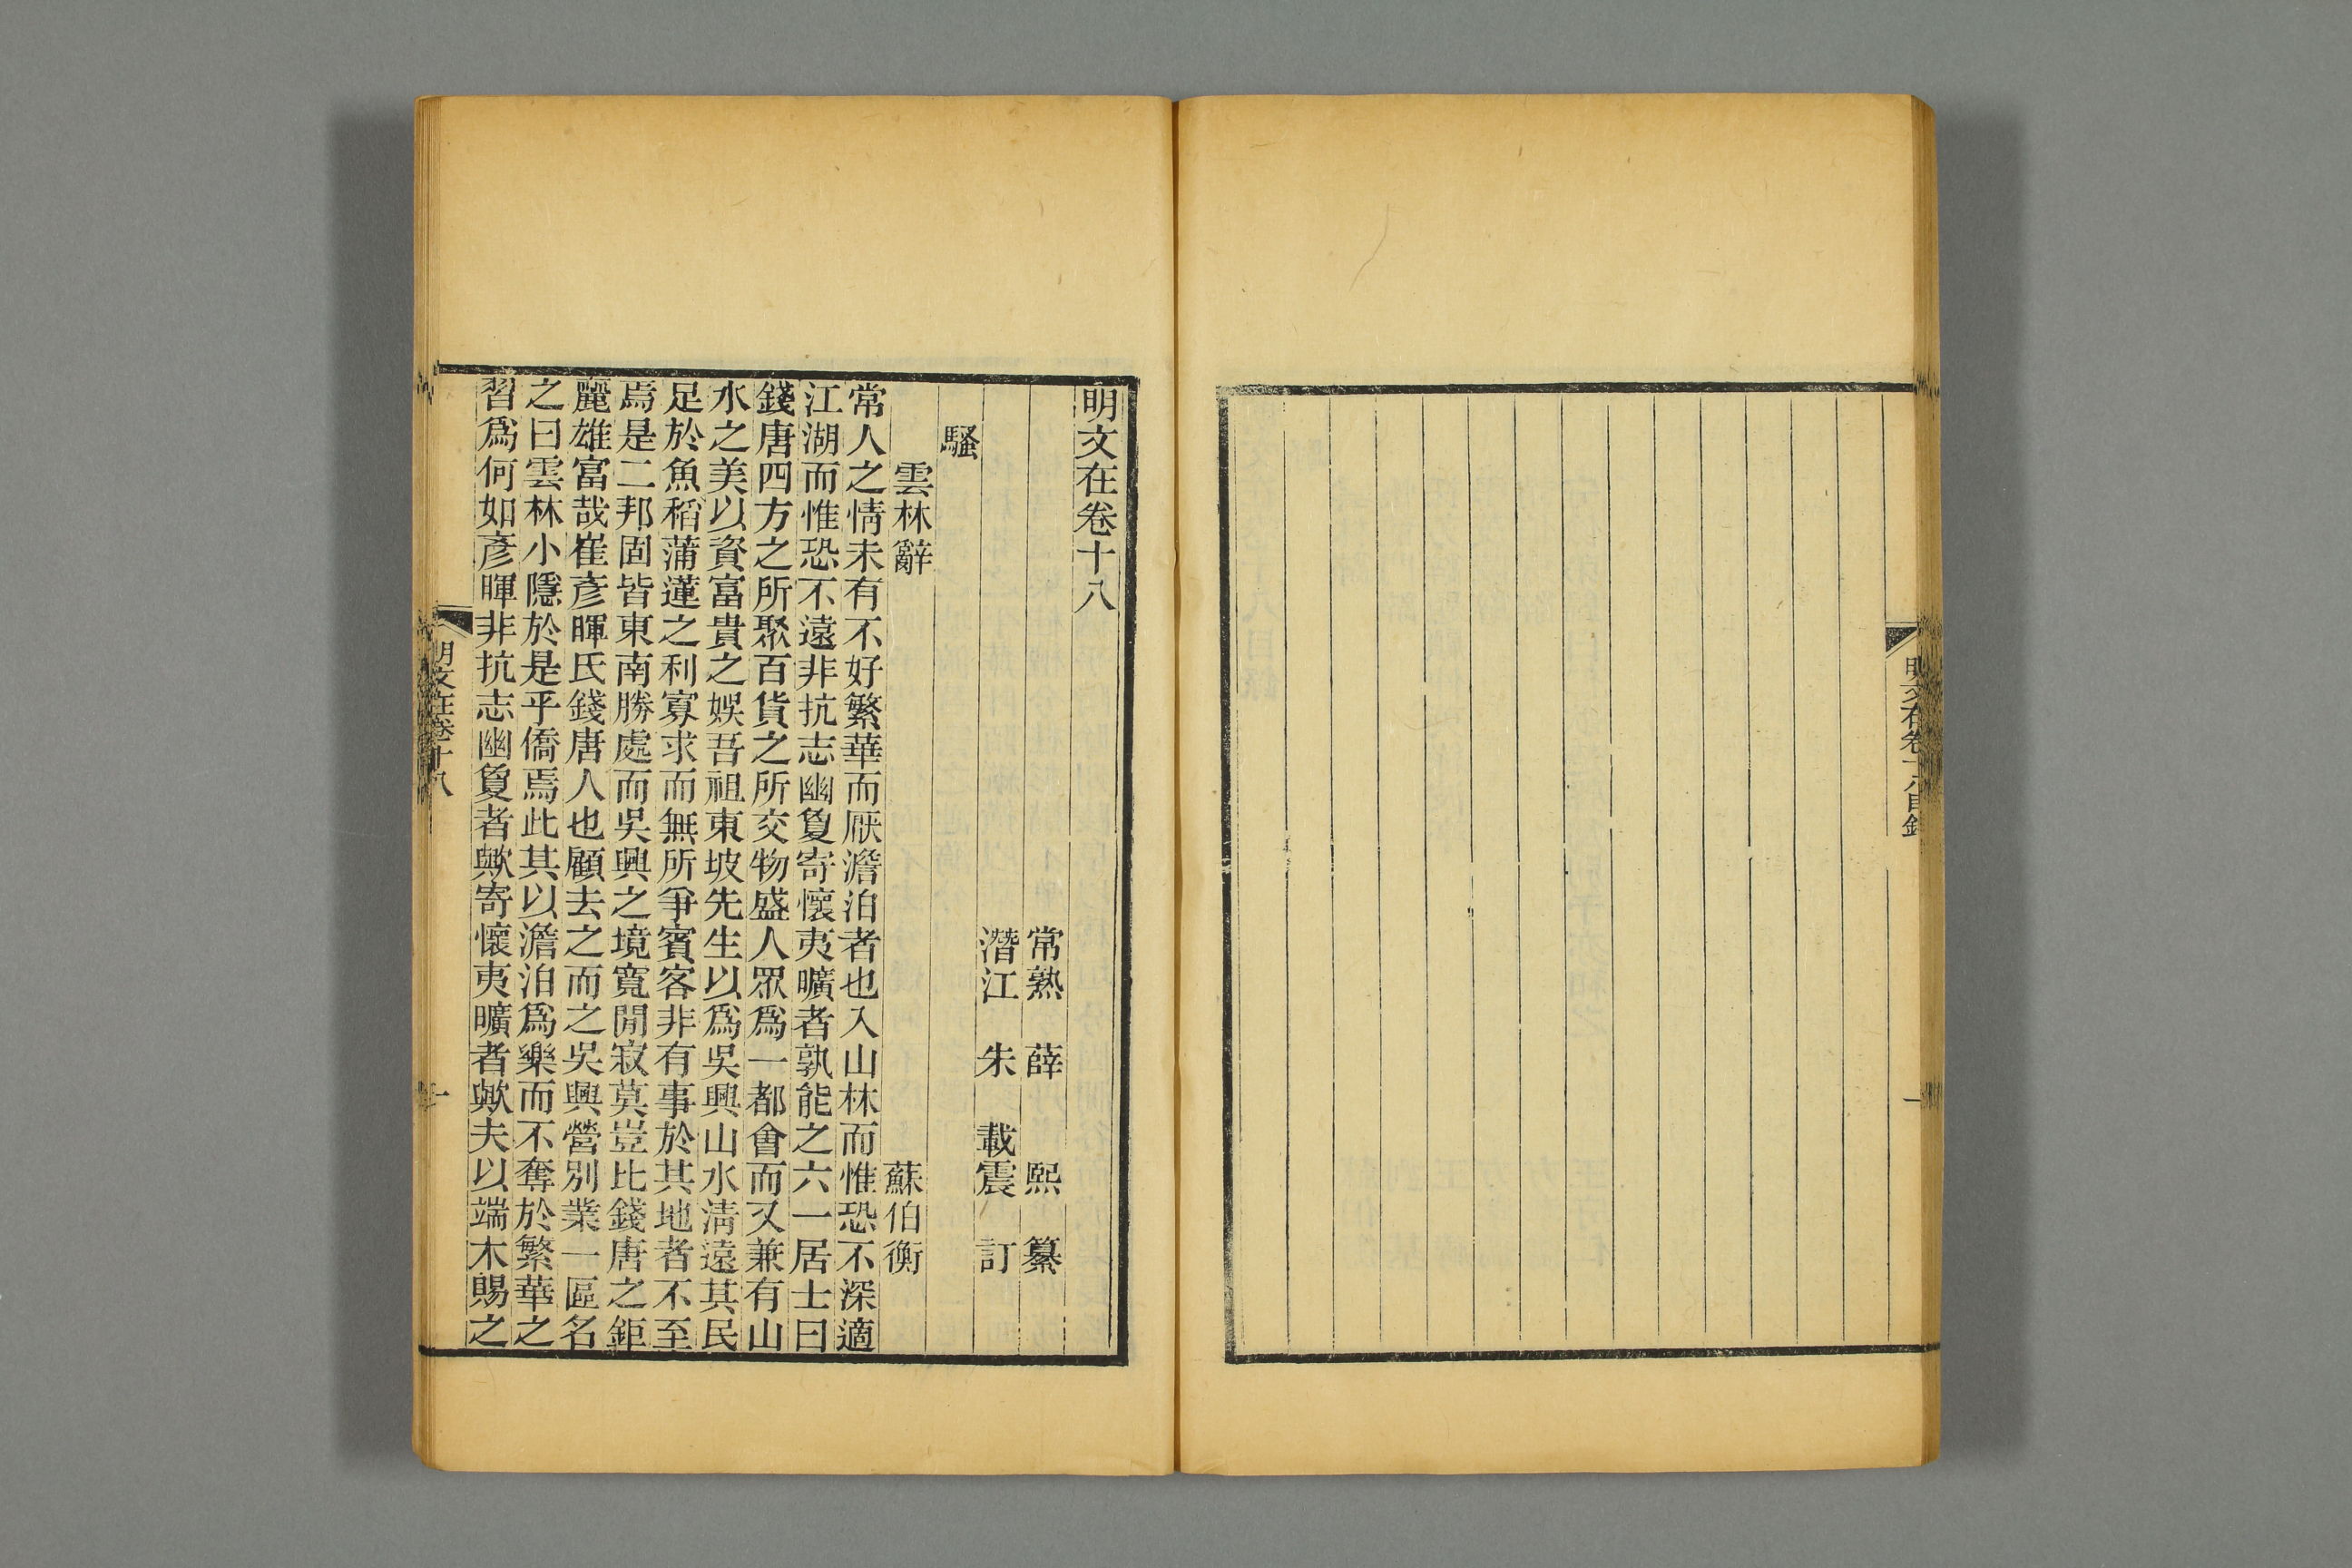 明文在卷十八目錄
一
明文在卷十八
常熟 薛 熙 纂
潛江 朱 載震 訂
騷
雲林辭 蘇伯衡
常人之情未有不好繁華而厭澹泊者也入山林而惟恐不深適
江湖而惟恐不遠非抗志幽敻寄懷夷曠者孰能之六一居士曰
錢唐四方之所聚百貨之所交物盛人眾爲一都會而又兼有山
水之美以資富貴之娛吾祖東坡先生以爲吳興山水淸遠其民
足於魚稻蒲蓮之利寡求而無所爭賓客非有事於其地者不至
焉是二邦固皆東南勝處而吳興之境寬閒寂莫豈比錢唐之鉅
麗雄富哉崔彥暉氏錢唐人也顧去之而之吳興營別業一區名
之曰雲林小隱於是乎僑焉此其以澹泊爲樂而不奪於繁華之
習爲何如彥暉非抗志幽敻者歟寄懷夷曠者歟夫以端木賜之
明文在卷十八
一